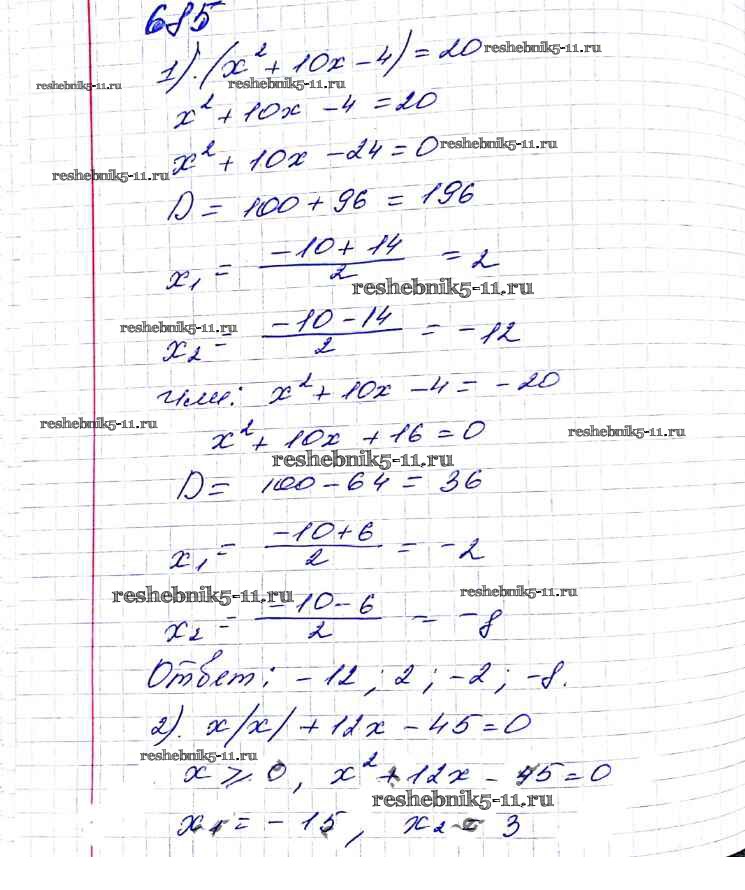 685
1). (x² + 10x - 4) = 20 reshebnik5-11.ru
reshebnik5-11.ru reshebnik5-11.ru
x² + 10x - 4 = 20
x² + 10x - 24 = 0 reshebnik5-11.ru
reshebnik5-11.ru
D = 100 + 96 = 196
x₁ = (-10 + 14)/2 = 2
reshebnik5-11.ru
reshebnik5-11.ru
x₂ = (-10 - 14)/2 = -12
Или: x² + 10x - 4 = -20
reshebnik5-11.ru reshebnik5-11.ru
x² + 10x + 16 = 0
reshebnik5-11.ru
D = 100 - 64 = 36
x₁ = (-10 + 6)/2 = -2
reshebnik5-11.ru reshebnik5-11.ru
x₂ = (-10 - 6)/2 = -8
Ответ: -12; 2; -2; -8.
2). x|x| + 12x - 45 = 0
reshebnik5-11.ru
x ⩾ 0, x² + 12x - 45 = 0
reshebnik5-11.ru
x₁ = -15, x₂ = 3